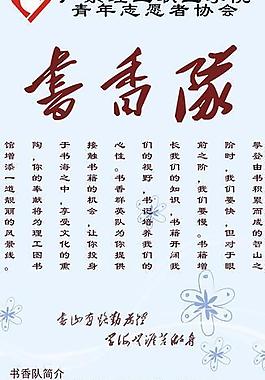 广东理工职业学院
青年志愿者协会
書香隊
攀登由书积累而成的智山之
阶时，我们要快，但对于眼
前之阶，我们要慢。书籍增
长我们的知识，书籍开阔我
们的视野，书记培养我们的
心性。书香群英队为你提供
接触书籍的机会，让你投身
于书海之中，享受文化的熏
陶，你的奉献将为理工图书
馆增添一道靓丽的风景线。
书山有路勤为径
学海无涯苦作舟
书香队简介